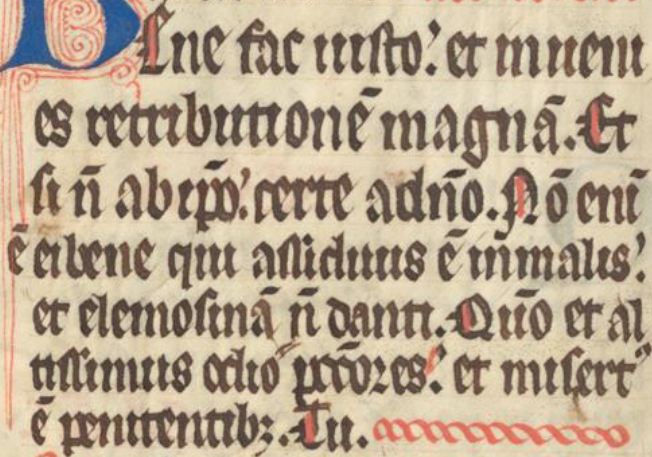 BEne fac iusto. et inueni
es retributionē magnā. Et
si n̄ ab ip̄o. certe a dn̄o. Nō eni̅
ē ei bene qui assiduus ē in malis.
et elemosinā n̄ danti. Qūo et al
tissimus odio p̄ctōres. et misert᷒
ē penitentibꝫ. Tu.